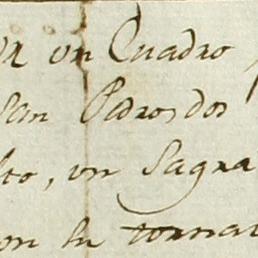 un Quadro
San Pedro, dos
lto, un Sagra
con su